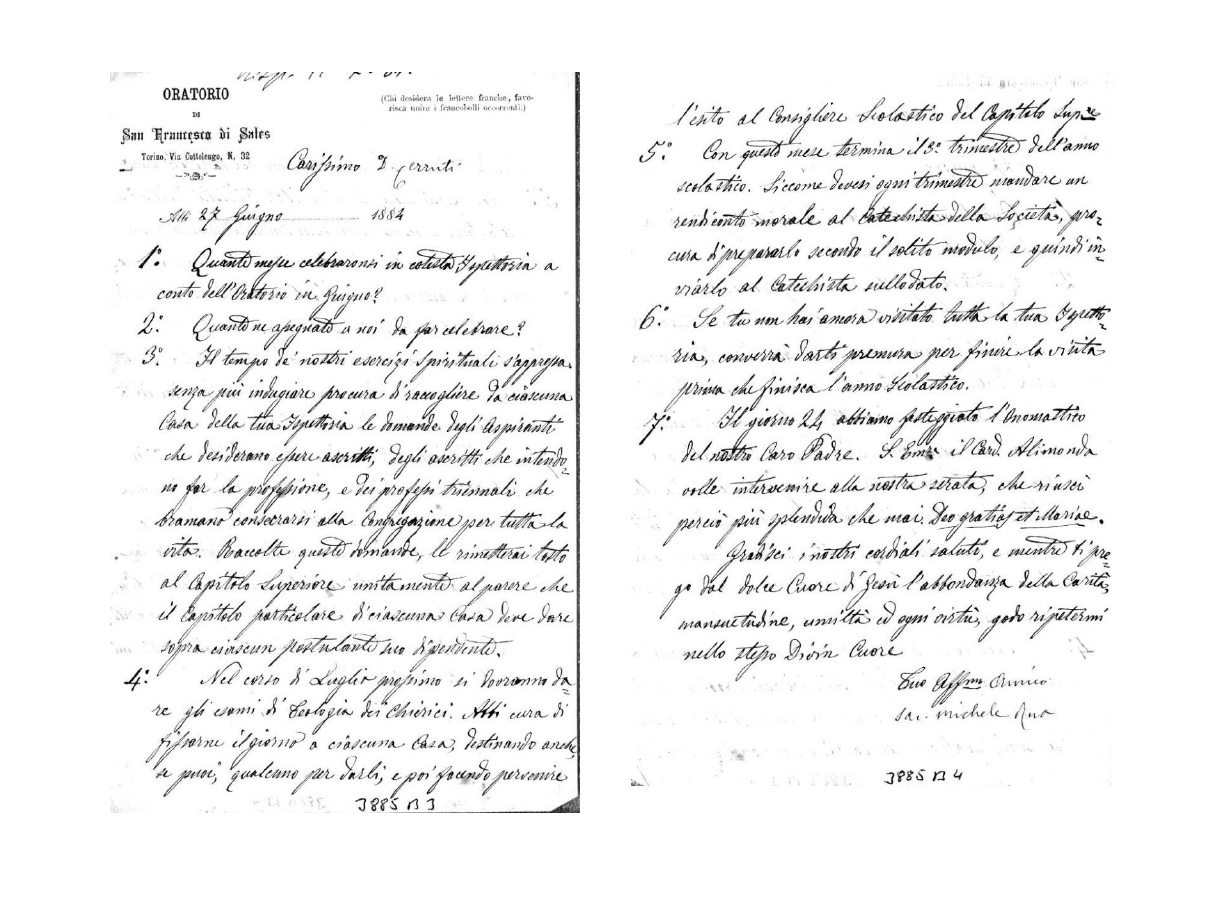 ORATORIO
DI
San Francesco di Sales
Torino, Via Cottolengo, N. 32
(Chi desidera le lettere franche, favo-
risca unire i francobolli occorrenti.)
Carissimo D. Cerruti
Alli 27 Giugno 1884
1.° Quante messe celebraronsi in cotesta Ispettoria a
conto dell'Oratorio in Giugno?
2.° Quante ne assegnate a noi da far celebrare?
3.° Il tempo de' nostri esercizi Spirituali s'appressa.
senza più indugiare procura di raccogliere da ciascuna
Casa della tua Ispettoria le domande degli Aspiranti
che desiderano essere ascritti, degli ascritti che intendo=
no far la professione, e dei professi triennali che
bramano consecrarsi alla Congregazione per tutta la
vita. Raccolte queste domande, le rimetterai tosto
al Capitolo Superiore unitamente al parere che
il Capitolo particolare di ciascuna Casa deve dare
sopra ciascun postulante suo dipendente.
4.° Nel corso di Luglio prossimo si dovranno da=
re gli esami di Teologia dei Chierici. Abbi cura di
fissarne il giorno a ciascuna Casa, destinando anche,
se puoi, qualcuno per darli, e poi facendo pervenire
3885 B 3
l'esito al Consigliere Scolastico del Capitolo Supre
5.° Con questo mese termina il 3° trimestre dell'anno
scolastico. Siccome devesi ogni trimestre mandare un
rendiconto morale al Catechista della Società, pro=
cura di prepararlo secondo il solito modulo, e quindi in=
viarlo al Catechista sullodato.
6.° Se tu non hai ancora visitato tutta la tua Ispetto=
ria, converrà darti premura per finire la visita
prima che finisca l'anno Scolastico.
7.° Il giorno 24 abbiamo festeggiato l'Onomastico
del nostro Caro Padre. S. Emza il Card. Alimonda
volle intervenire alla nostra serata, che riuscì
perciò più splendida che mai. Deo gratias et Mariae.
Gradisci i nostri cordiali saluti, e mentre ti pre=
go dal dolce Cuore di Gesù l'abbondanza della Carità,
mansuetudine, umiltà ed ogni virtù, godo ripetermi
nello stesso Divin Cuore
Tuo Affmo Amico
Sac. Michele Rua
3885 B 4